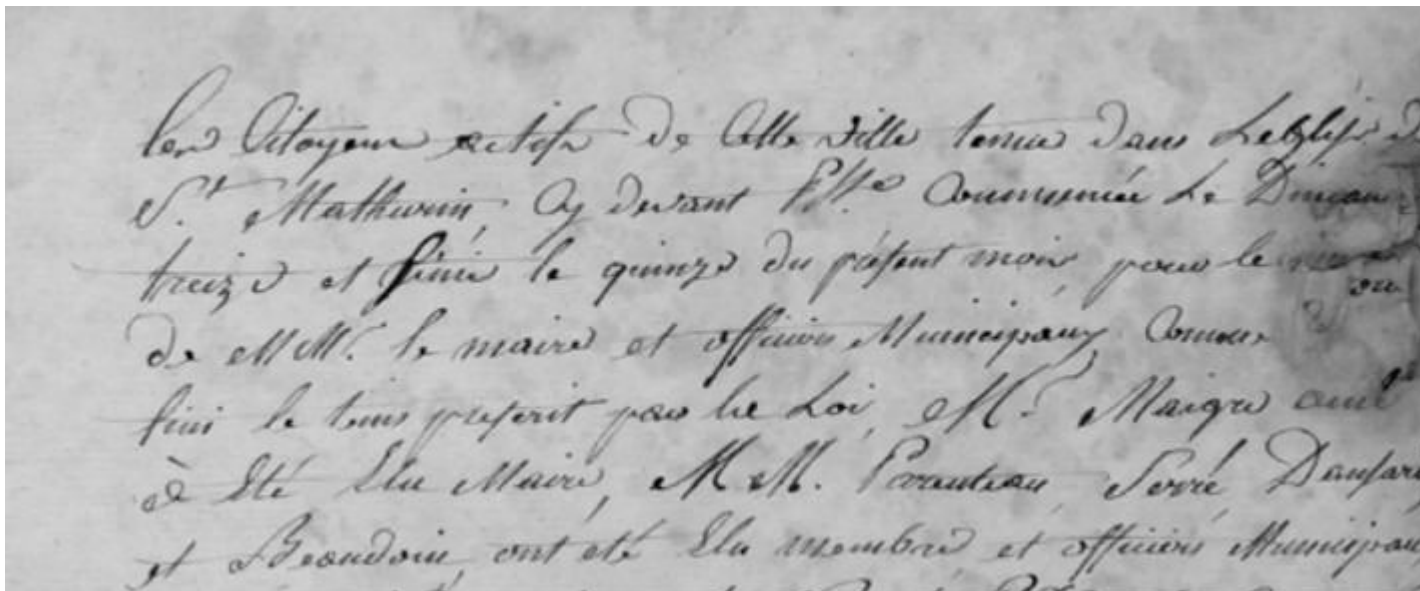 les Citoyens actifs de Cette ville tenue dans L'eglise d
S.t Mathurin, Cy devant P.sse Commencée Le Diman
treize et finie le quinze du présent mois, pour le
de MM.rs le maire et officiers Municipaux Comme
fini le tems prescrit par la Loi, M.r Maigre ainé
à Eté Elu Maire, M M. Serré
et Beaudoin, ont été Elu membre, et officiers Municipaux